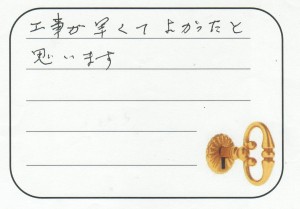 工事が早くてよかったと
思います